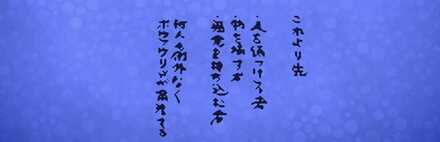 これより先
・人を傷つける者
・物を壊す者
・過食を持ち込む者
何人も例外なく
ボウフウリンが粛清する